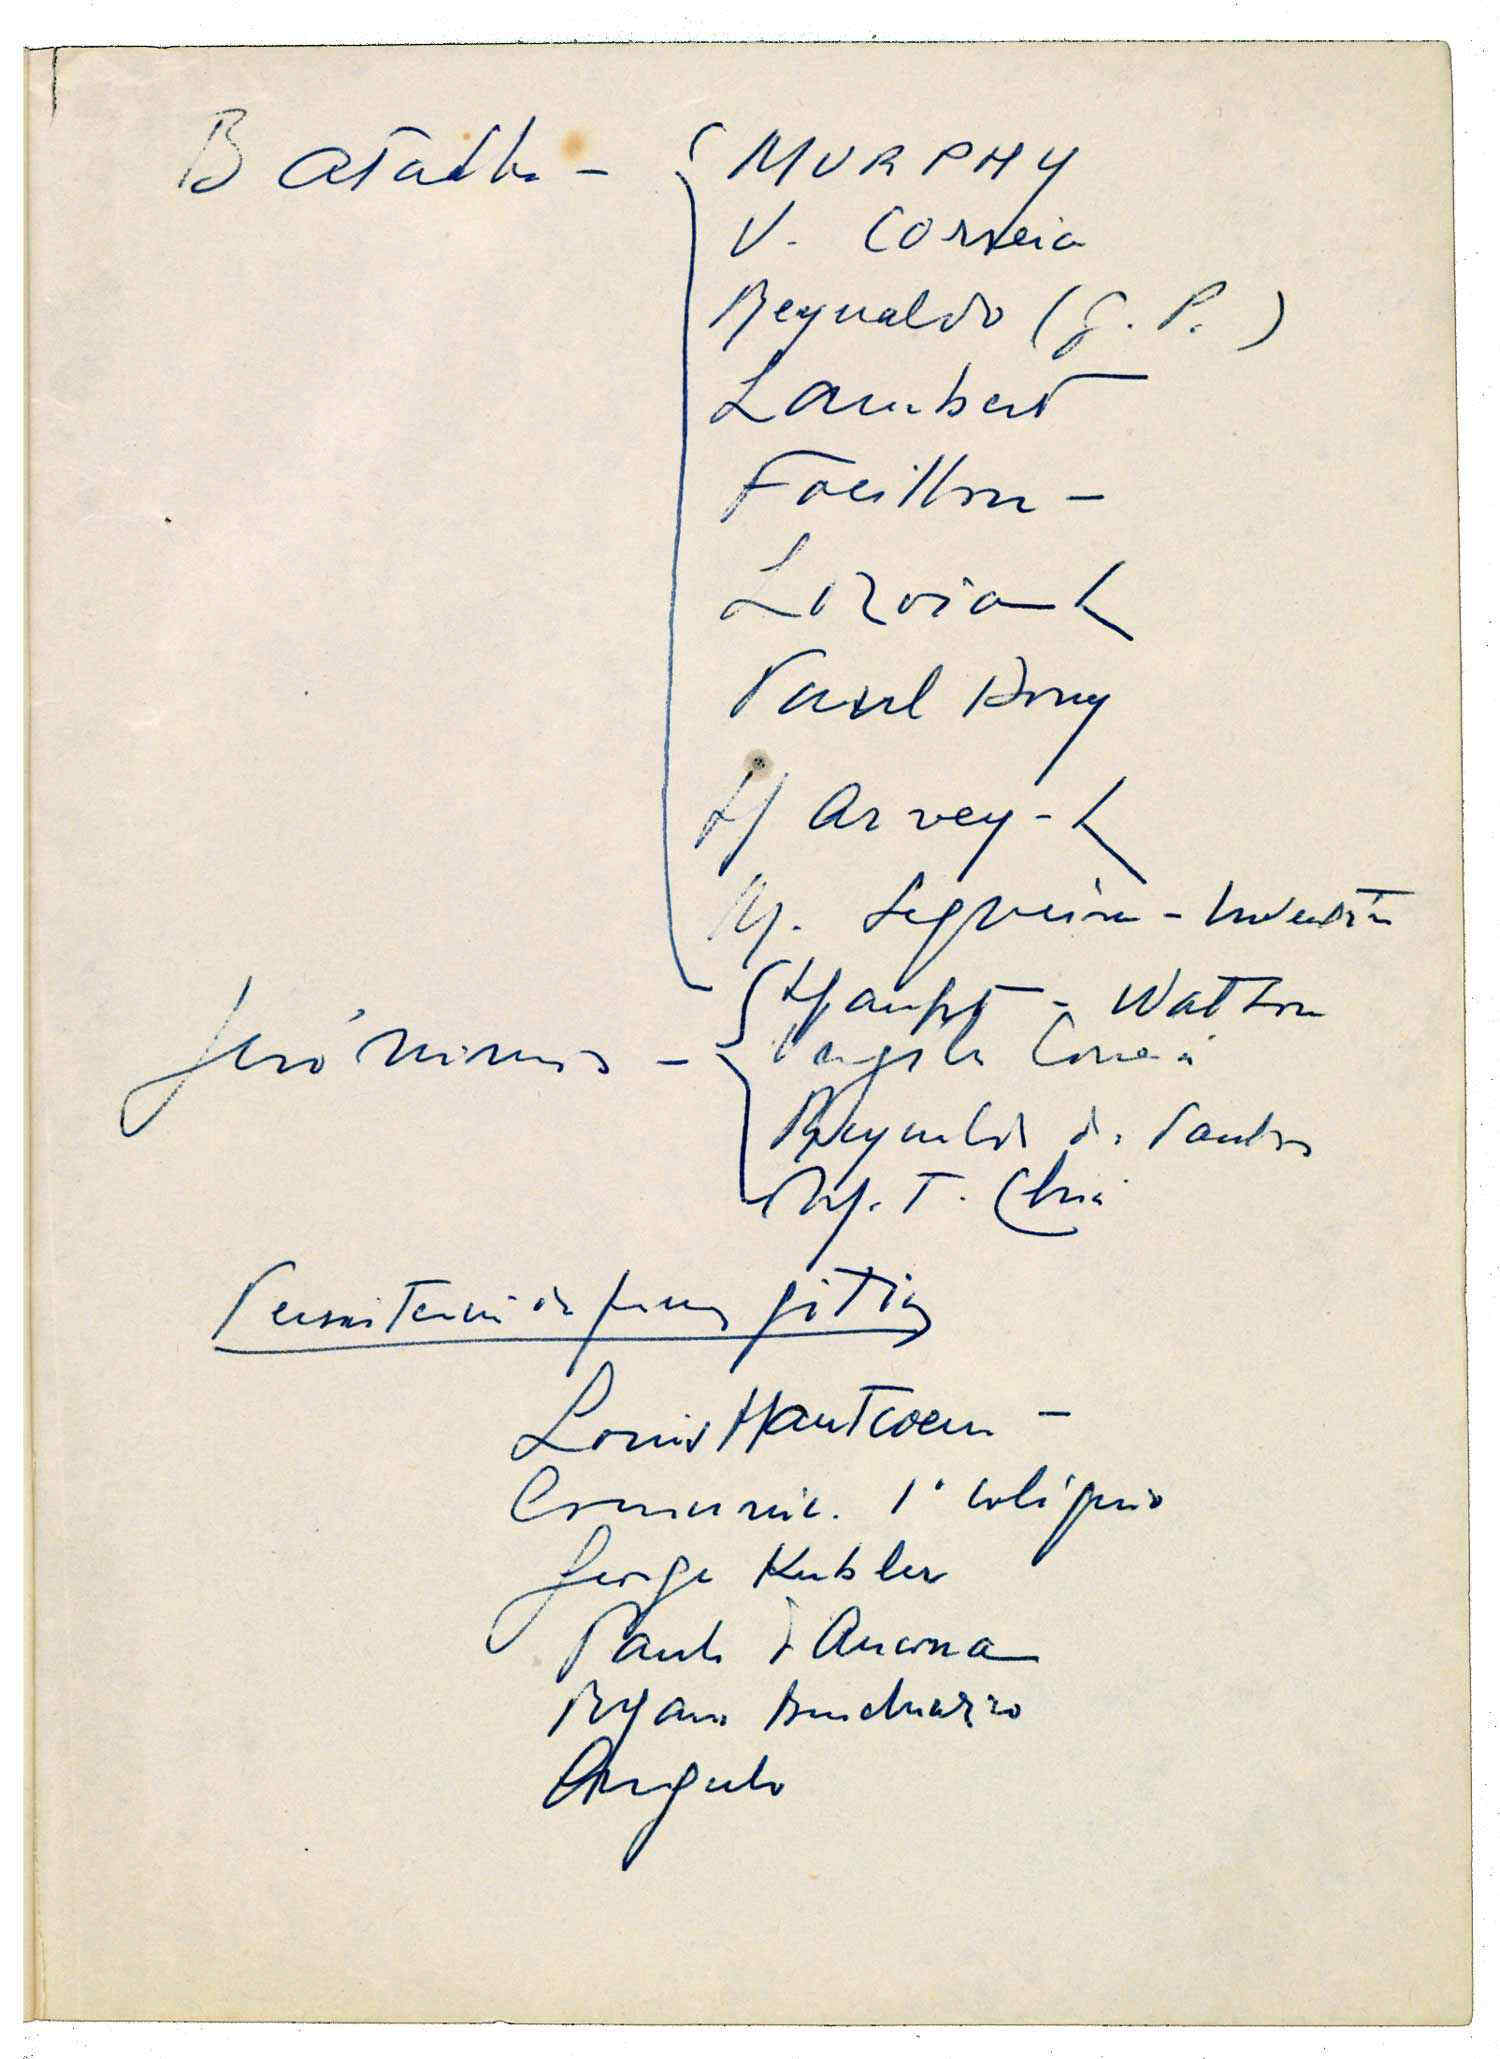 Batalha - MURPHY
V. Correia
Reynaldo (G. P.)
Lambert
Focillon -
Lozoia
Paul Dony
Harvey -
M. Segueira - Inventário
Jerónimos - Haupt - Watson
Vergilio Correia
Reynaldo dos Santos
M. T. Chicó
Persistencia de formas góticas
Louis Hautcoeur -
Comunic. 1º colóquio
George Kubler
Paulo d'Ancona
Angulo